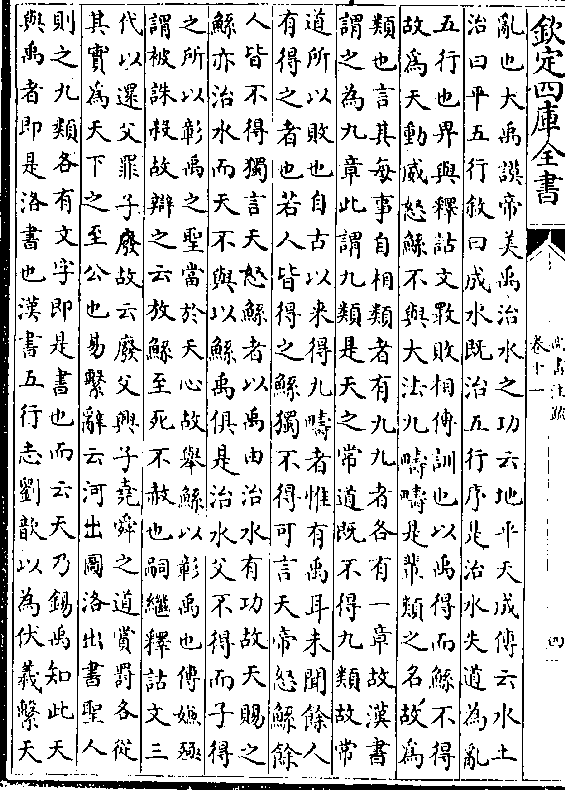 欽定四庫全書
尚書注疏
卷十一
四
亂也大禹謨帝美禹治水之功云地平天成傳云水土
治曰平五行敘曰成水既治五行序是治水失道為亂
五行也畀與釋詁文斁敗相傳訓也以禹得而鯀不得
故為天動威怒鯀不與大法九疇疇是輩類之名故為
類也言其每事自相類者有九九者各有一章故漢書
謂之為九章此謂九類是天之常道既不得九類故常
道所以敗也自古以來得九疇者惟有禹耳未聞餘人
有得之者也若人皆得之鯀獨不得可言天帝怒鯀餘
人皆不得獨言天怒鯀者以禹由治水有功故天賜之
鯀亦治水而天不與以鯀禹俱是治水父不得而子得
之所以彰禹之聖當於天心故舉鯀以彰禹也傳嫌殛
謂被誅殺故辯之云放鯀至死不赦也嗣繼釋詁文三
代以還父罪子廢故云廢父興子堯舜之道賞罰各從
其實為天下之至公也易繫辭云河出圖洛出書聖人
則之九類各有文字即是書也而云天乃錫禹知此天
與禹者即是洛書也漢書五行志劉歆以為伏羲繫天